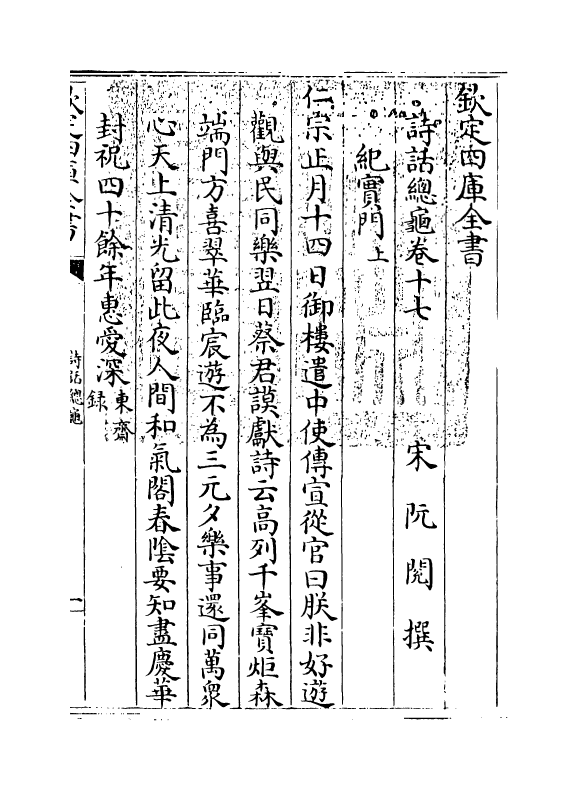 欽定四庫全書
詩話總龜卷十七
宋 阮 閱 撰
紀實門上
仁宗正月十四日御樓遣中使傳宣從官曰朕非好遊
觀與民同樂翌日蔡君謨獻詩云高列千峯寶炬森
端門方喜翠華臨宸遊不為三元夕樂事還同萬衆
心天上清光留此夜人間和氣閣春陰要知盡慶華
封祝四十餘年惠愛深東齋
録
欽定四庫全書
詩話總龜
一